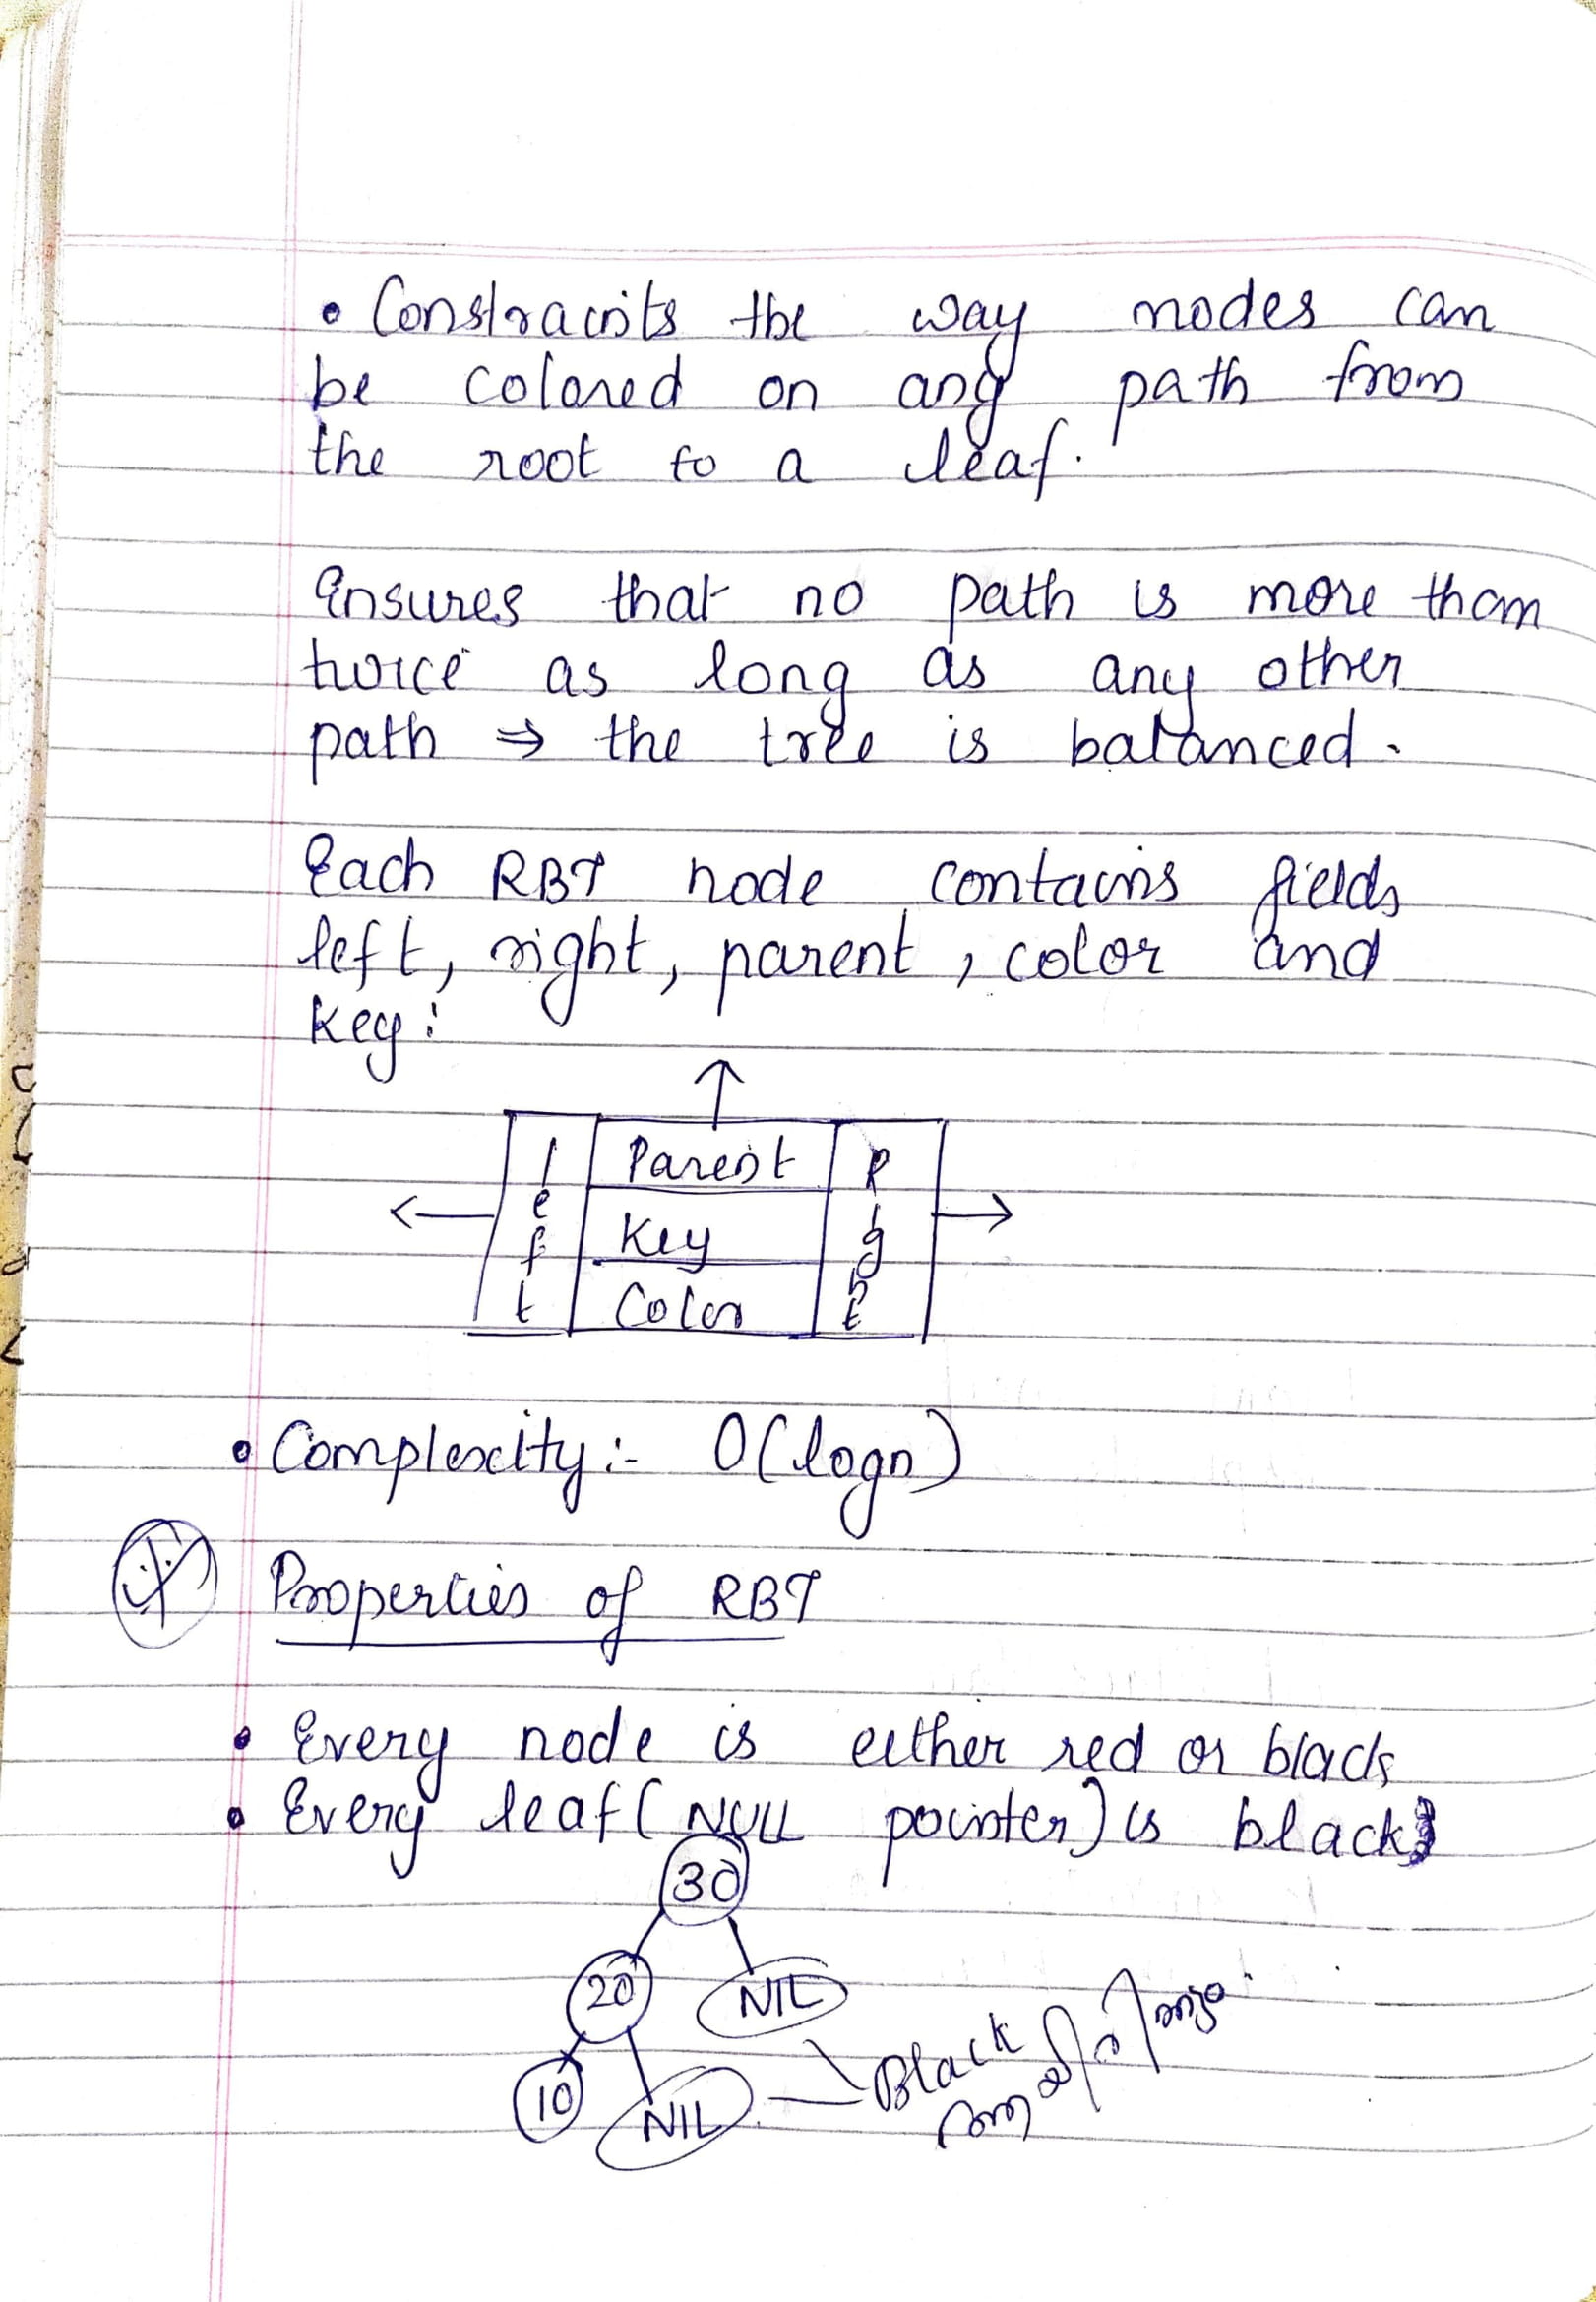 • Constraints the way nodes can
be colored on any path from
the root to a leaf.
Ensures that no path is more than
twice as long as any other
path ⇒ the tree is balanced.
Each RBT node contains fields
left, right, parent, color and
key:
left Parent Right
Key
Color
• Complexity:- O(logn)
Properties of RBT
• Every node is either red or black
• Every leaf (NULL pointer) is black
30
20 NIL
10 NIL Black